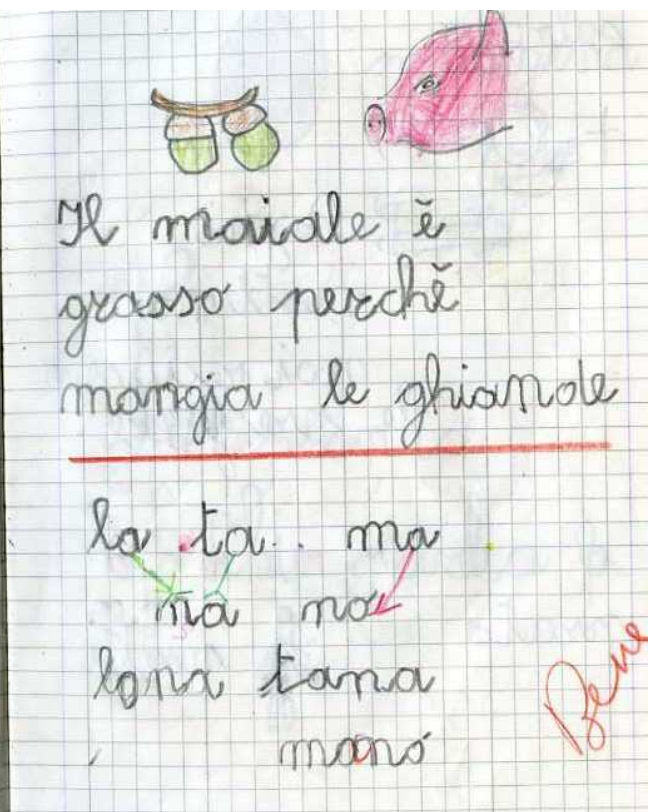 Il maiale è
grasso perchè
mangia le ghiande
la ta.. ma
na no
lana tana
mano
Bene